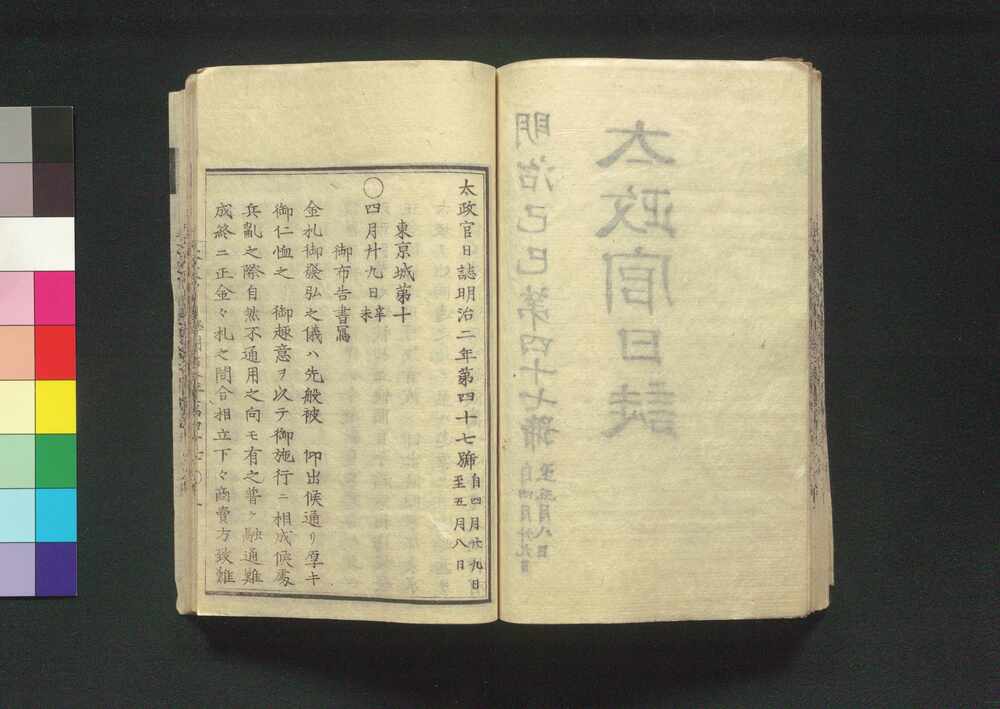 太政官日誌
明治己巳第四十七號
自四月廿九日
至五月八日
太政官日誌明治二年第四十七號
自四月廿九日
至五月八日
東京城第十
○四月廿九日辛未
御布告書寫
金札御發弘之儀ハ先般被 仰出候通リ厚キ
御仁恤之 御趣意ヲ以テ御施行ニ相成候處
兵亂之際自然不通用之向モ有之普ク融通難
成終ニ正金々札之間合相立下々商賣方致難